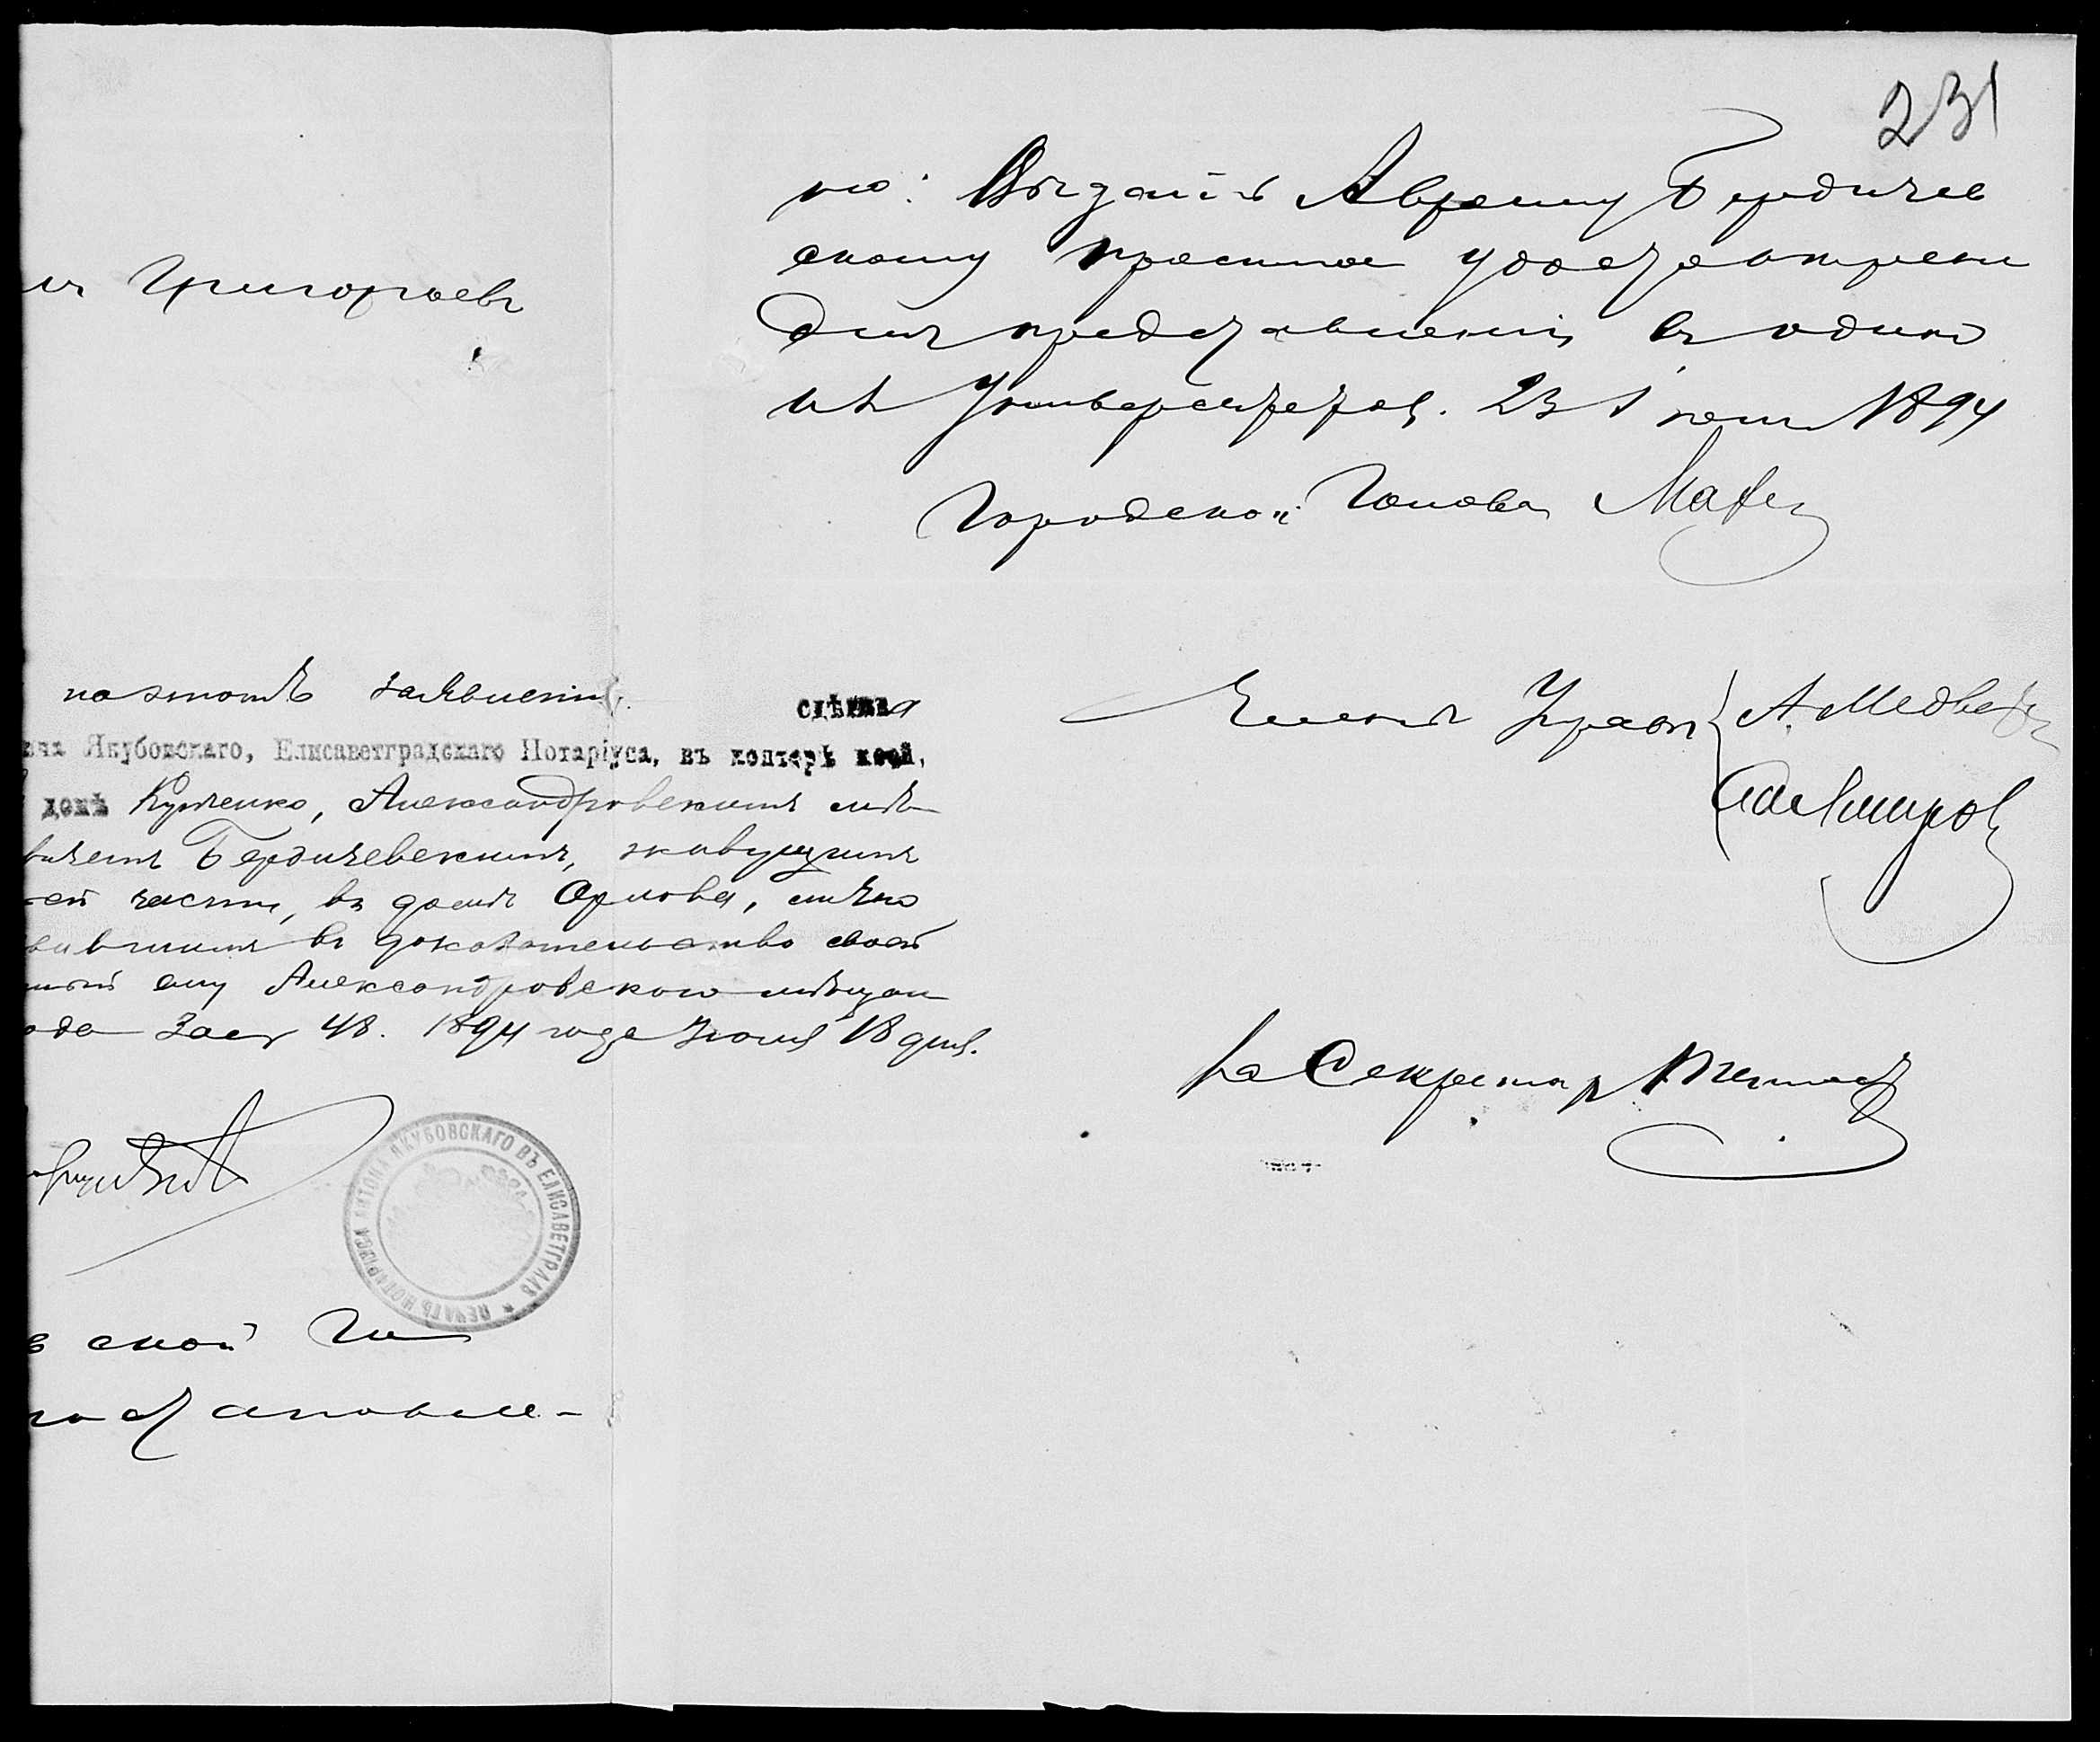 231
но: Выдать Авраму Бердичев
скому просимое удостоверени
для представленія въ одинъ
изъ Университетов. 23 Іюня 1894
Городской Голова
Члены Управы А. Медведев
За Секретаря
ъ Григорьевъ
на этомъ заявленіи сдѣлана
вича Якубовскаго, Елисаветградскаго Нотаріуса, въ конторѣ коей,
домѣ Куценко, Александровскимъ мѣ
вичемъ Бердичевскимъ, живущимъ
ей части, въ домѣ Орлова, лично
вившимъ въ доказательство своей
ный ему Александровскою мѣщан
ода за № 48. 1894 года Іюня 18 дня.
ПЕЧАТЬ НОТАРІУСА АНТОНА ЯКУБОВСКАГО ВЪ ЕЛИСАВЕТГРАДѢ
в ской
постановле-